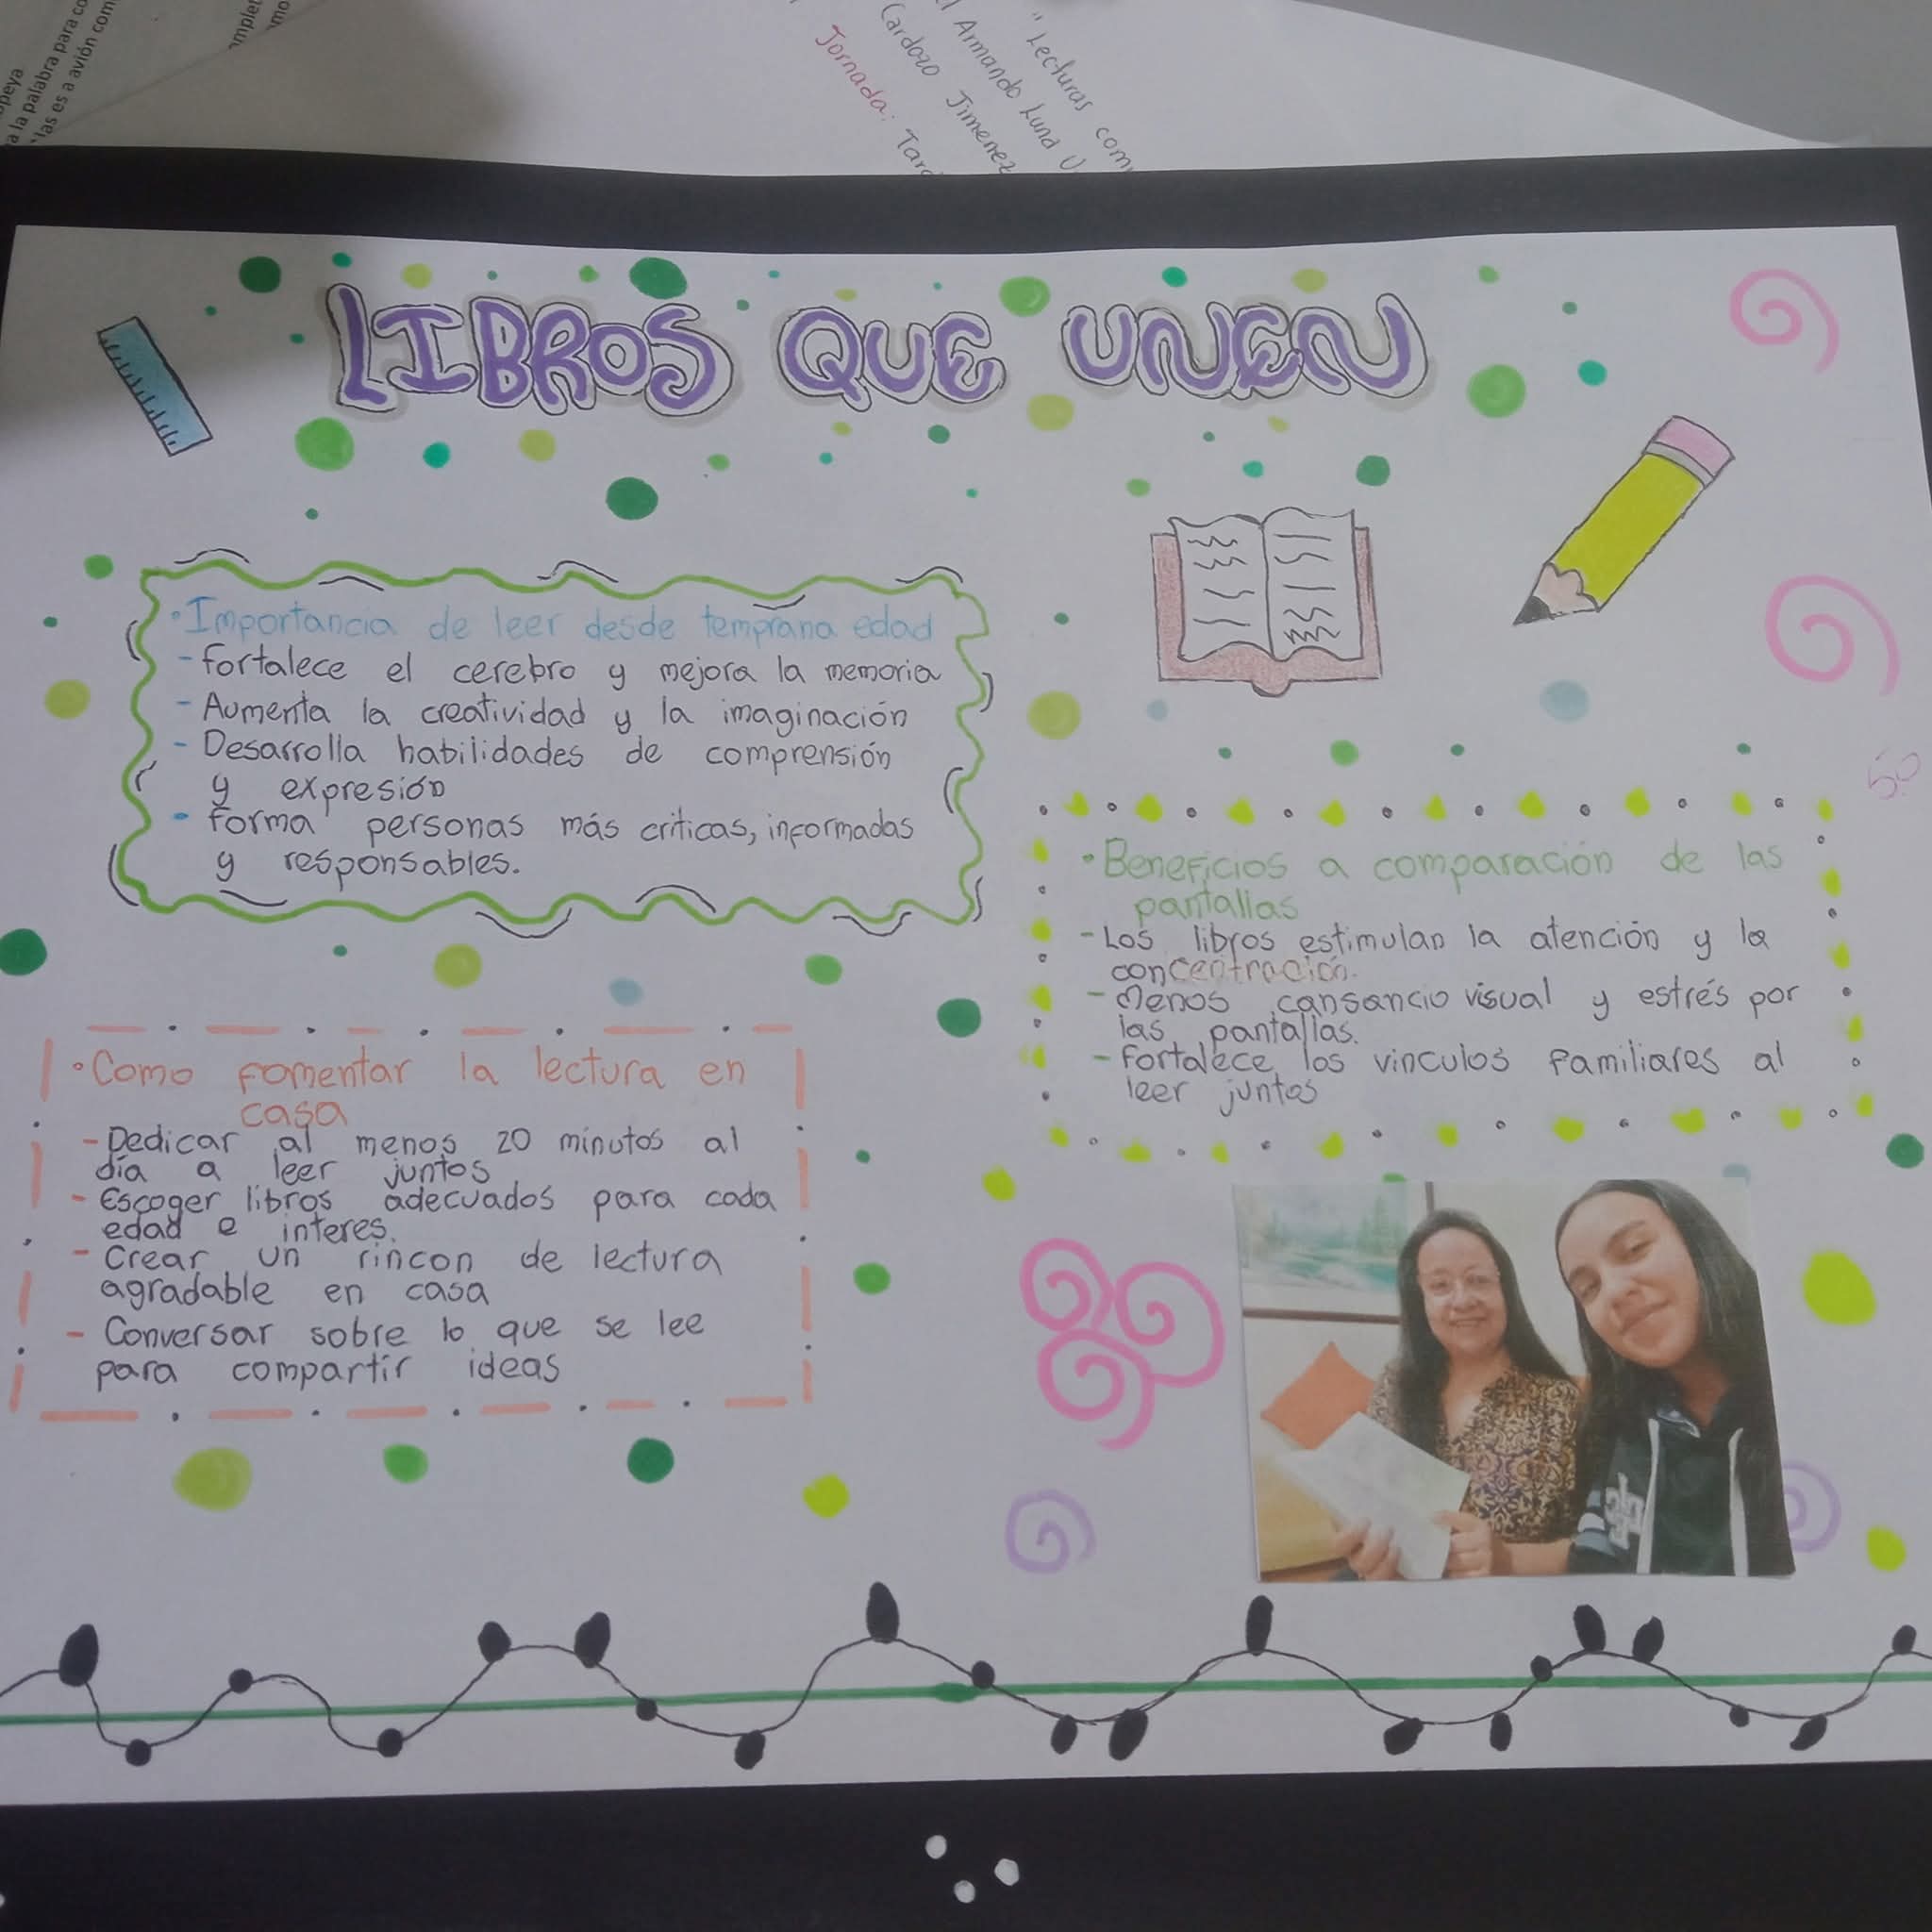 a la palabra para co
las es a avión com
" Lecturas com
Armando Luna U
Cardozo Jimenez
Jornada: Tard
LIBROS QUE UNEN
• Importancia de leer desde temprana edad
- fortalece el cerebro y mejora la memoria
- Aumenta la creatividad y la imaginación
- Desarrolla habilidades de comprensión
y expresión
- forma personas más criticas, informadas
y responsables.
5.0
• Beneficios a comparación de las
pantallas
- Los libros estimulan la atención y la
concentración.
- Menos cansancio visual y estrés por
las pantallas.
- Fortalece los vinculos familiares al
leer juntos
• Como fomentar la lectura en
casa
- Dedicar al menos 20 minutos al
día a leer juntos
- Escoger libros adecuados para cada
edad e interes.
- Crear un rincon de lectura
agradable en casa
- Conversar sobre lo que se lee
para compartir ideas